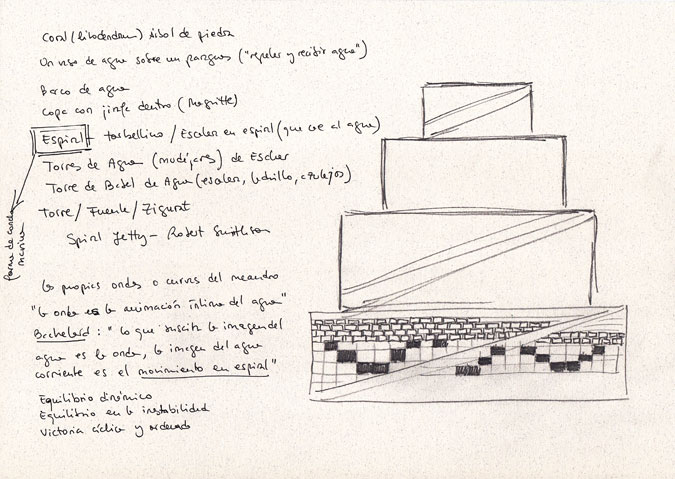 Coral (litodendrum) árbol de piedra
Un vaso de agua sobre un paraguas ("repeler y recibir agua")
Barco de agua
Copa con jirafa dentro (Magritte)
Espiral - torbellino / Escalera en espiral (que cae al agua)
Torres de Agua (mudéjares) de Escher
Torre de Babel de Agua (escalera, ladrillo, azulejos)
Torre / Fuente / Zigurat
Spiral Jetty - Robert Smithson
forma de concha marina
las propias ondas o curvas del meandro
"la onda es la animación íntima del agua"
Bachelard: "lo que suscita la imagen del
agua es la onda, la imagen del agua
corriente es el movimiento en espiral"
Equilibrio dinámico
Equilibrio en la inestabilidad
Victoria cíclica y ordenada